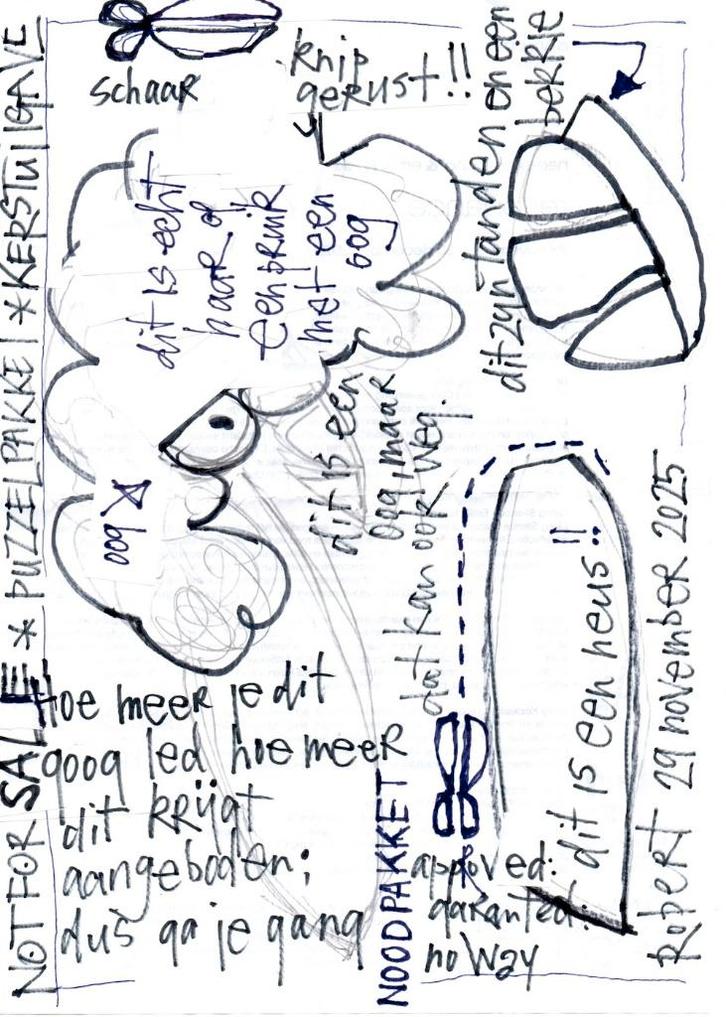 NOT FOR SALE * PUZZELPAKKET * KERSTUITGAVE
schaar
knip
gerust!!
dit zijn tanden en een
bekkie
dit is echt
haar of
een pruik
met een
oog
oog
dit is een
oog, maar
dat kan ook weg.
hoe meer je dit
goog led hoe meer
dit krijgt
aangeboden;
dus ga je gang
NOODPAKKET
approved:
garanted:
no way
dit is een neus!!
Robert 29 november 2025